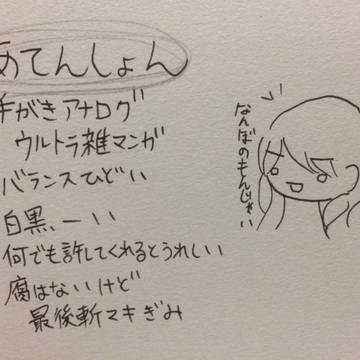 あてんしょん
手がきアナログ
ウルトラ雑マンガ
バランスひどい
白黒、ーい
何でも許してくれるとうれしい
腐はないけど
最後斬マキぎみ
なんぼのもんじゃい